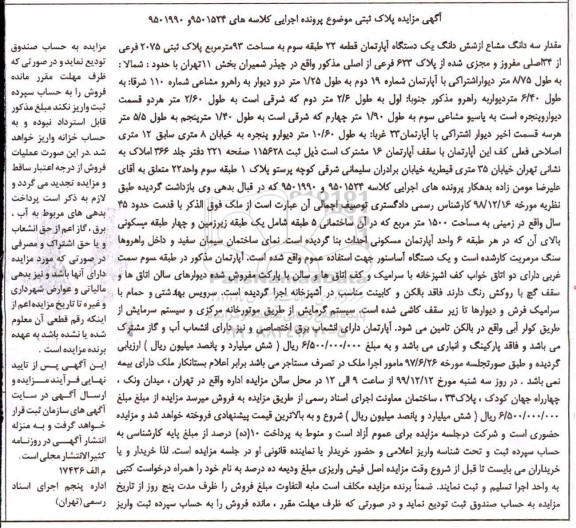 آگهی مزایده پلاک ثبتی موضوع پرونده اجرایی کلاسه های ۹۵۰۱۵۳۴و ۹۵۰۱۹۹۰
مقدار سه دانگ مشاع ازشش دانگ یک دستگاه آپارتمان قطعه ۲۲ طبقه سوم به مساحت ۹۳مترمربع پلاک ثبتی ۲۰۷۵ فرعی
از ۳۴اصلی مفروز و مجزی شده از پلاک ۶۲۳ فرعی از اصلی مذکور واقع در چیذر شمیران بخش ۱۱تهران با حدود : شمالا :
به طول ۸/۷۵ متر دیواراشتراکی با آپارتمان شماره ۱۹ دوم به طول ۱/۲۵ متر درو دیوار به راهرو مشاعی شماره ۱۱۰ شرقا: به
طول ۶/۴۰ متردیواربه راهرو مذکور جنوبا: اول به طول ۲/۶ متر دوم که شرقی است به طول ۲/۶۰ متر هردو قسمت
دیواروپنجره است به پاسیو مشاعی سوم به طول ۱/۹۰ متر چهارم که شرقی است به طول ۱/۴۰ مترپنجم به طول ۵/۵ متر
هرسه قسمت اخیر دیوار اشتراکی با آپارتمان۲۳ غربا: به طول ۱۰/۶۰ متر دیوارو پنجره به خیابان ۸ متری سابق ۱۲ متری
اصلاحی فعلی کف این آپارتمان با سقف آپارتمان ۱۶ مشترک است ذیل ثبت ۱۱۵۶۲۸ صفحه ۲۲۱ دفتر جلد ۳۶۶ املاک به
نشانی تهران خیابان ۳۵ متری قیطریه خیابان برادران سلیمانی شرقی کوچه پرستو پلاک ۱ طبقه سوم واحد۲۲ متعلق به آقای
علیرضا مومن زاده بدهکار پرونده های اجرایی کلاسه ۹۵۰۱۵۳۴ و ۹۵۰۱۹۹۰ که در قبال بدهی وی بازداشت گردیده طبق
نظریه مورخه ۹۸/۱۲/۱۶ کارشناس رسمی دادگستری توصیف اجمالی آن عبارت است از ملک فوق الذکر با قدمت حدود ۴۵
سال واقع در زمینی به مساحت ۱۵۰۰ متر مربع که در آن ساختمانی ۵ طبقه شامل یک طبقه زیرزمین و چهار طبقه مسکونی
بالای آن که در هر طبقه ۶ واحد آپارتمان مسکونی احداث بنا گردیده است. نمای ساختمان سیمان سفید و داخل راهروها
سنگ مرمریت کارشده است و یک دستگاه آسانسور جهت استفاده عموم واقع شده است. آپارتمان مذکور در طبقه سوم سمت
غربی دارای دو اتاق خواب کف اشپزخانه با سرامیک و کف اتاق ها و سالن با پارکت مفروش شده دیوارهای سالن اتاق ها و
سقف گچ با روکش رنگ دارند فاقد بالکن و کابینت مناسب در آشپزخانه اجرا گردیده است. سرویس بهداشتی و حمام با
سرامیک فرش و دیوارها تا زیر سقف کاشی شده است. سیستم گرمایش از طریق موتورخانه مرکزی و سیستم سرمایش از
طریق کولر آبی واقع در بالکن تامین می شود. آپارتمان دارای انشعاب برق اختصاصی و نیز دارای انشعاب آب و گاز مشترک
می باشد و فاقد پارکینگ و انباری می باشد و به مبلغ ۶/۵۰۰/۰۰۰/۰۰۰ ریال ( شش میلیارد و پانصد میلیون ریال ) ارزیابی
گردیده و طبق صورتجلسه مورخه ۹۷/۶/۲۶ مامور اجرا ملک در تصرف مستاجر می باشد برابر اعلام بستانکار ملک دارای بیمه
نمی باشد . در روز سه شنبه مورخ ۹۹/۱۲/۱۲ از ساعت ۹ الی ۱۲ در محل سالن مزایده اداره واقع در تهران ، میدان ونک ،
چهارراه جهان کودک ، پلاک۳۴ ، ساختمان معاونت اجرای اسناد رسمی از طریق مزایده به فروش میرسد مزایده از مبلغ مبلغ
۶/۵۰۰/۰۰۰/۰۰۰ ریال ( شش میلیارد و پانصد میلیون ریال ) شروع و به بالاترین قیمت پیشنهادی فروخته خواهد شد و مزایده
حضوری است و شرکت درجلسه مزایده برای عموم آزاد است و منوط به پرداخت ۱۰(ده) درصد از مبلغ پایه کارشناسی به
حساب سپرده ثبت و تحت شناسه واریز اعلامی و حضور خریدار یا نماینده قانونی او در جلسه مزایده است. لذا خریدار و یا
خریداران می بایست تا قبل از شروع وقت مزایده اصل فیش واریزی مبلغ ودیعه ده درصد به نام خود را همراه درخواست کتبی
به واحد اجرا تسلیم و ثبت نمایند. ضمناً برنده مزایده مکلف است مابه التفاوت مبلغ فروش را ظرف مدت پنج روز از تاریخ
مزایده به حساب صندوق ثبت تودیع نماید و در صورتی که ظرف مهلت مقرر ، مانده فروش را به حساب سپرده ثبت واریز
مزایده به حساب صندوق
تودیع نماید و در صورتی که
ظرف مهلت مقرر مانده
فروش را به حساب سپرده
ثبت واریز نکند مبلغ مذکور
قابل استرداد نبوده و به
حساب خزانه واریز خواهد
شد .در این صورت عملیات
فروش از درجه اعتبار ساقط
و مزایده تجدید می گردد و
لازم به ذکر است پرداخت
بدهی های مربوط به آب ،
برق ، گاز اعم از حق انشعاب
و یا حق اشتراک و مصرفی
در صورتی که مورد مزایده
دارای آنها باشد و نیز بدهی
مالیاتی و عوارض شهرداری
و غیره تا تاریخ مزایده اعم از
اینکه رقم قطعی آن معلوم
شده یا نشده باشد به عهده
برنده مزایده است .
این آگهی پس از تایید
نهایی فرآیند مزایده و
ارسال آگهی در سایت
آگهی های سازمان ثبت قرار
خواهد گرفت و به منزله
انتشار آگهی در روزنامه
کثیرالانتشار محلی است.
م الف ۱۷۴۳۶
اداره پنجم اجرای اسناد
رسمی(تهران)